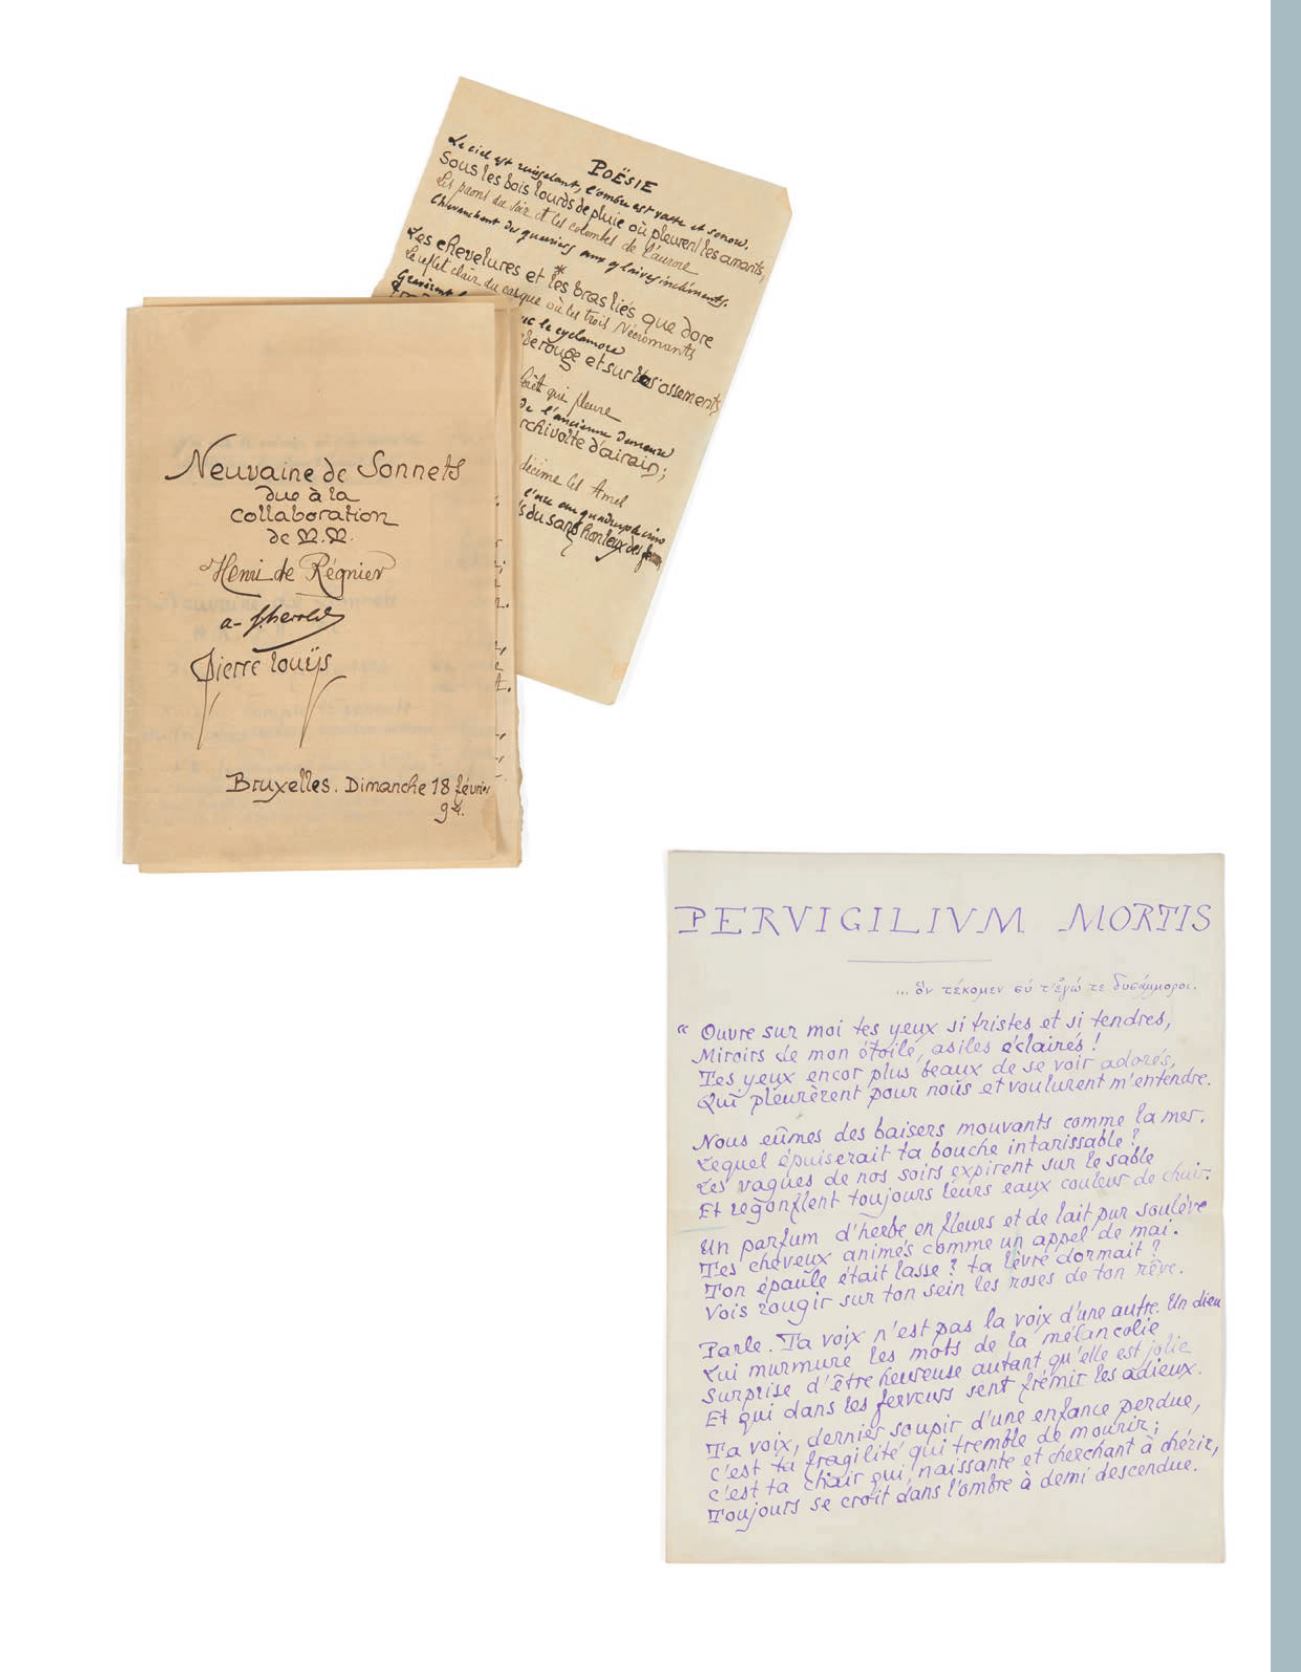 POËSIE
Le ciel est ruisselant, l'ombre est vaste et sonore.
Sous les bois lourds de pluie où pleurent les amants,
Les paons du soir et les colombes de l'aurore
Chevauchent des guerriers aux glaives incléments.
Les chevelures et les bras liés que dore
Le reflet clair du casque où les trois Nécromants
Gravirent
le cyclamore
rouge et sur les ossements
qui pleure
de l'ancienne demeure
rchivolte d'airain;
décime les Amel
du sang honteux des
Neuvaine de Sonnets
due à la
collaboration
de M.M.
Henri de Régnier
a-f. herold
Pierre Louÿs
Bruxelles. Dimanche 18 février
94.
PERVIGILIVM MORTIS
... ὃν τέκομεν σύ τ'ἐγώ τε δυσάμμοροι.
“ Ouvre sur moi tes yeux si tristes et si tendres,
Miroirs de mon étoile, asiles éclairés !
Tes yeux encor plus beaux de se voir adorés,
Qui pleurèrent pour nous et voulurent m'entendre.
Nous eûmes des baisers mouvants comme la mer.
Lequel épuiserait ta bouche intarissable ?
Les vagues de nos soirs expirent sur le sable
Et regonflent toujours leurs eaux couleur de chair.
Un parfum d'herbe en fleurs et de lait pur soulève
Tes cheveux animés comme un appel de mai.
Ton épaule était lasse ? ta lèvre dormait ?
Vois rougir sur ton sein les roses de ton rêve.
Parle. Ta voix n'est pas la voix d'une autre. Un dieu
Lui murmure les mots de la mélancolie
Surprise d'être heureuse autant qu'elle est jolie
Et qui dans les ferveurs sent frémir les adieux.
Ta voix, dernier soupir d'une enfance perdue,
C'est ta fragilité qui tremble de mourir;
C'est ta chair qui, naissante et cherchant à chérir,
Toujours se croit dans l'ombre à demi descendue.